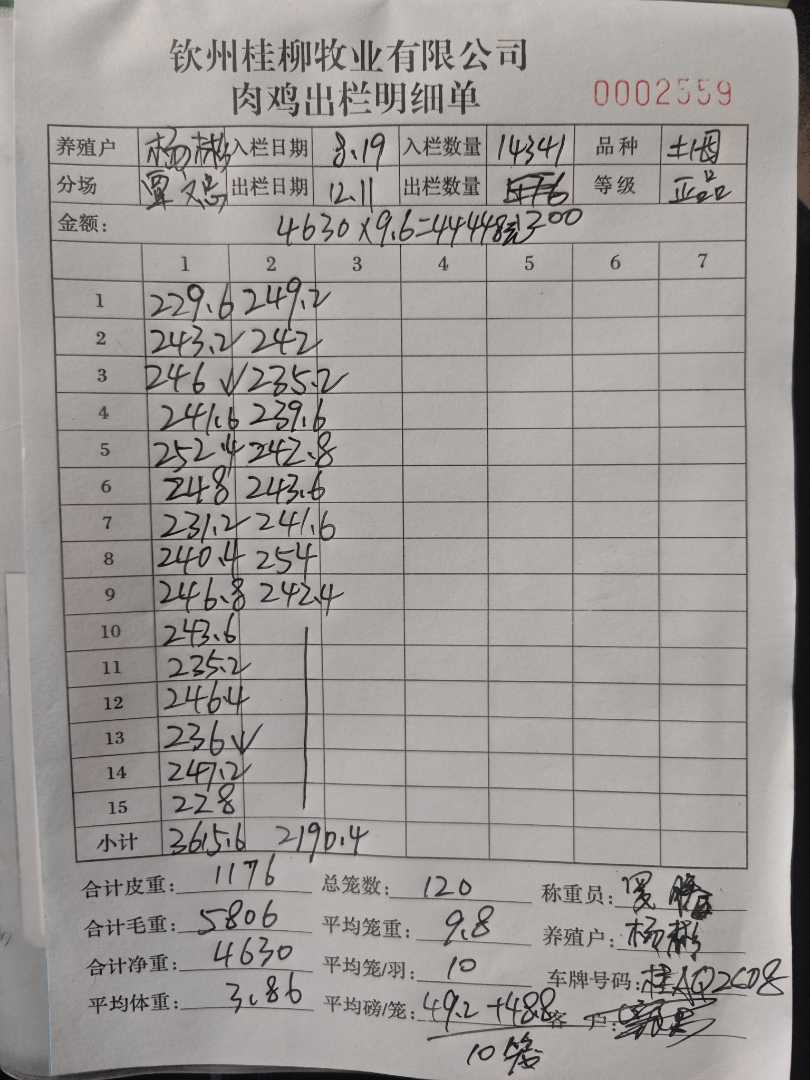 钦州桂柳牧业有限公司
肉鸡出栏明细单
0002559
养殖户 杨彬 入栏日期 8.19 入栏数量 14341 品种 土
分场 谭 出栏日期 12.11 出栏数量 等级 正品
金额: 4630×9.6=44448 300
1 2 3 4 5 6 7
1 229.6 249.2
2 243.2 242
3 246 235.2
4 241.6 239.6
5 252.4 242.8
6 248 243.6
7 231.2 241.6
8 240.4 254
9 246.8 242.4
10 243.6
11 235.2
12 246.4
13 236
14 247.2
15 228
小计 3615.6 2190.4
合计皮重: 1176 总笼数: 120 称重员:
合计毛重: 5806 平均笼重: 9.8 养殖户: 杨彬
合计净重: 4630 平均笼/羽: 10 车牌号码: 桂AQ2C08
平均体重: 3.86 平均磅/笼: 49.2+48.8 客户:
10笼